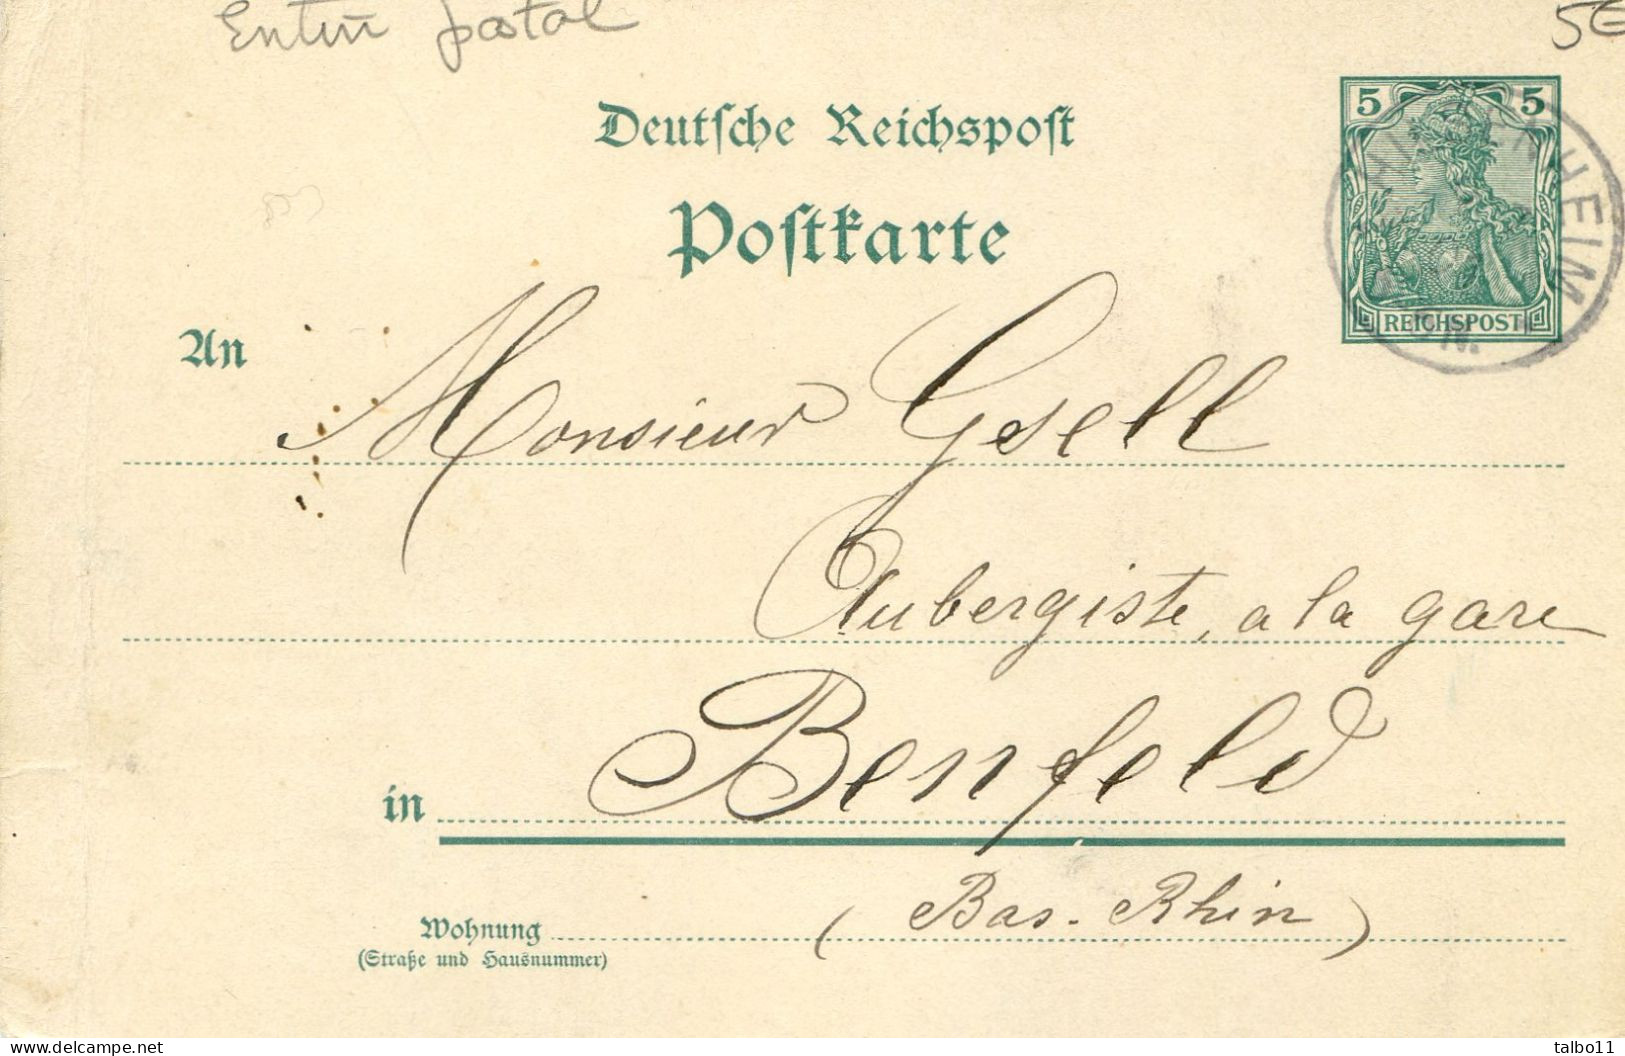 Entier postal
5€
Deutsche Reichspost
Postkarte
5 5
REICHSPOST
An
Monsieur Gsell
Aubergiste, a la gare
in Benfeld
(Bas-Rhin)
Wohnung
(Straße und Hausnummer)
delcampe.net
talbo11